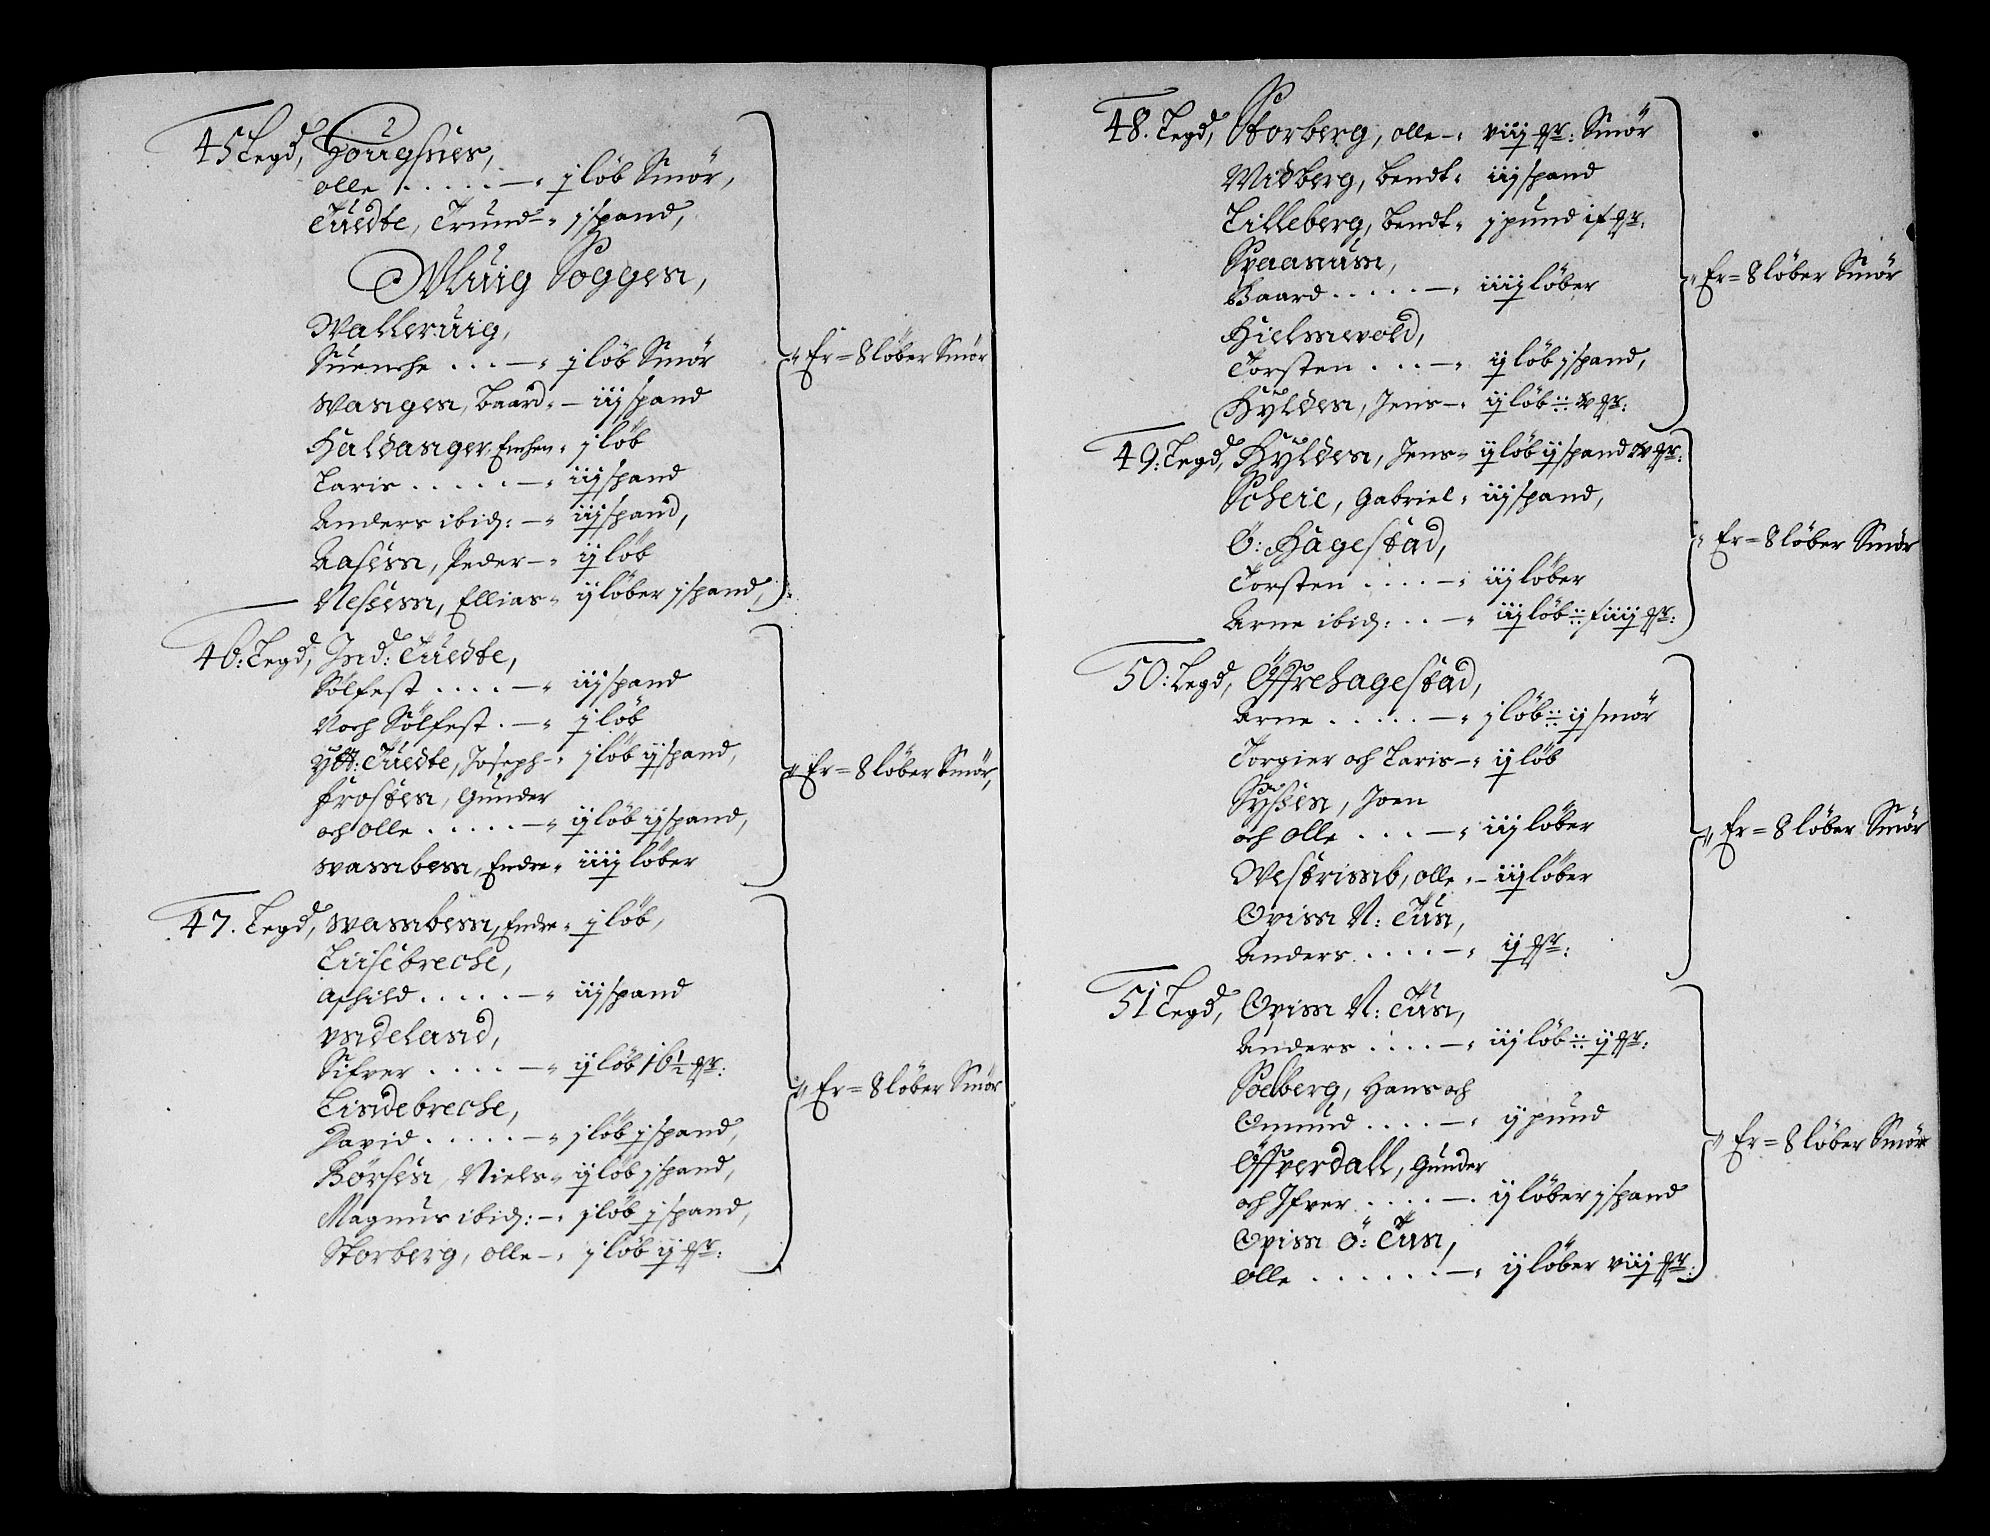 45 Legd, Hougsnes,
olle . . . . . —" j løb Smør,
Tuedte, Trund —" j spand,
Vluiig Soggen,
Walleruiig,
Suenche . . . —" j løb Smør
Wangen, Baard" — iij spand
Haldanger, Emhen" j løb
Laris . . . . . —" iij spand
Anders ibid: —" iij spand,
Aasem, Peder —" ij løb
Nesem, Ellias" ij løber j spand,
"Er = 8 løber Smør
46: Legd, Ind: Tuedte,
Sølfest . . . . —" iij spand
Noch Sølfest . —" j løb
Ytt: Tuedte, Joseph —" j løb ij spand,
frosten, Gunder
och olle . . . . . —" ij løb ij spand,
wambem, Endre" iiij løber
"Er = 8 løber Smør,
47. Legd, wambem, Endre" j løb,
Liisebreche,
Asshild . . . . . —" iij spand
vndeland,
Sifver . . . . —" ij løb 16½ ℔:
Lindebreche,
David . . . . . —" j løb j spand,
Børsen, Niels —" ij løb j spand,
Magnus ibid: —" j løb j spand,
Storberg, olle —" j løb ij ℔:
"Er = 8 løber Smør
48. Legd, Storberg, olle —" viij ℔: Smør
Midberg, Bendt" iij spand
Lilleberg, Bendt" j pund if ℔.
Spaanum,
Baard . . . . . —" iiij løber
Hielmevold,
Torsten . . . —" ij løb j spand,
Hylden, Jens —" ij løb :: xv ℔:
"Er = 8 løber Smør
49: Legd, Hylden, Jens" ij løb ij spand xv ℔:
Scheie, Gabriel" iij spand,
Ö: Hagestad,
Torsten . . . . —" iij løber
Arne ibid: . . —" iij løb :: fiiij ℔:
"Er = 8 løber Smør
50: Legd, Öffrehagestad,
Arne . . . . . —" j løb :: ij smør
Torgier och Laris —" ij løb
Sysen, Joen
och olle . . . —" iij løber
Westrimb, olle" — iij løber
Opim N: Tun,
Anders . . . . —" ij ℔:
"Er = 8 løber Smør
51 Legd, Opim N: Tun,
Anders . . . . —" iij løb :: ij ℔:
Solberg, Hans och
Omund . . . . —" ij pund
Öffverdall, Gunder
och Ifver . . . . —" ij løber j spand
Opim Ö: Tun,
olle . . . . . . —" ij løber viij ℔:
"Er = 8 løber Smør